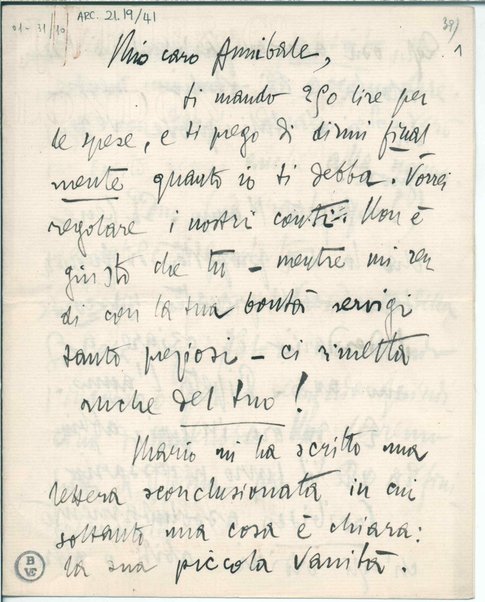 01-31/10
ARC. 21.19/41
39)
1
Mio caro Annibale,
ti mando 250 lire per
le spese, e ti prego di dirmi final
mente quanto io ti debba. Vorrei
regolare i nostri conti. Non è
giusto che tu – mentre mi ren
di con la tua bontà servigi
tanto preziosi – ci rimetta
anche del tuo!
Mario mi ha scritto una
lettera sconclusionata in cui
soltanto una cosa è chiara:
la sua piccola vanità.
B
VE